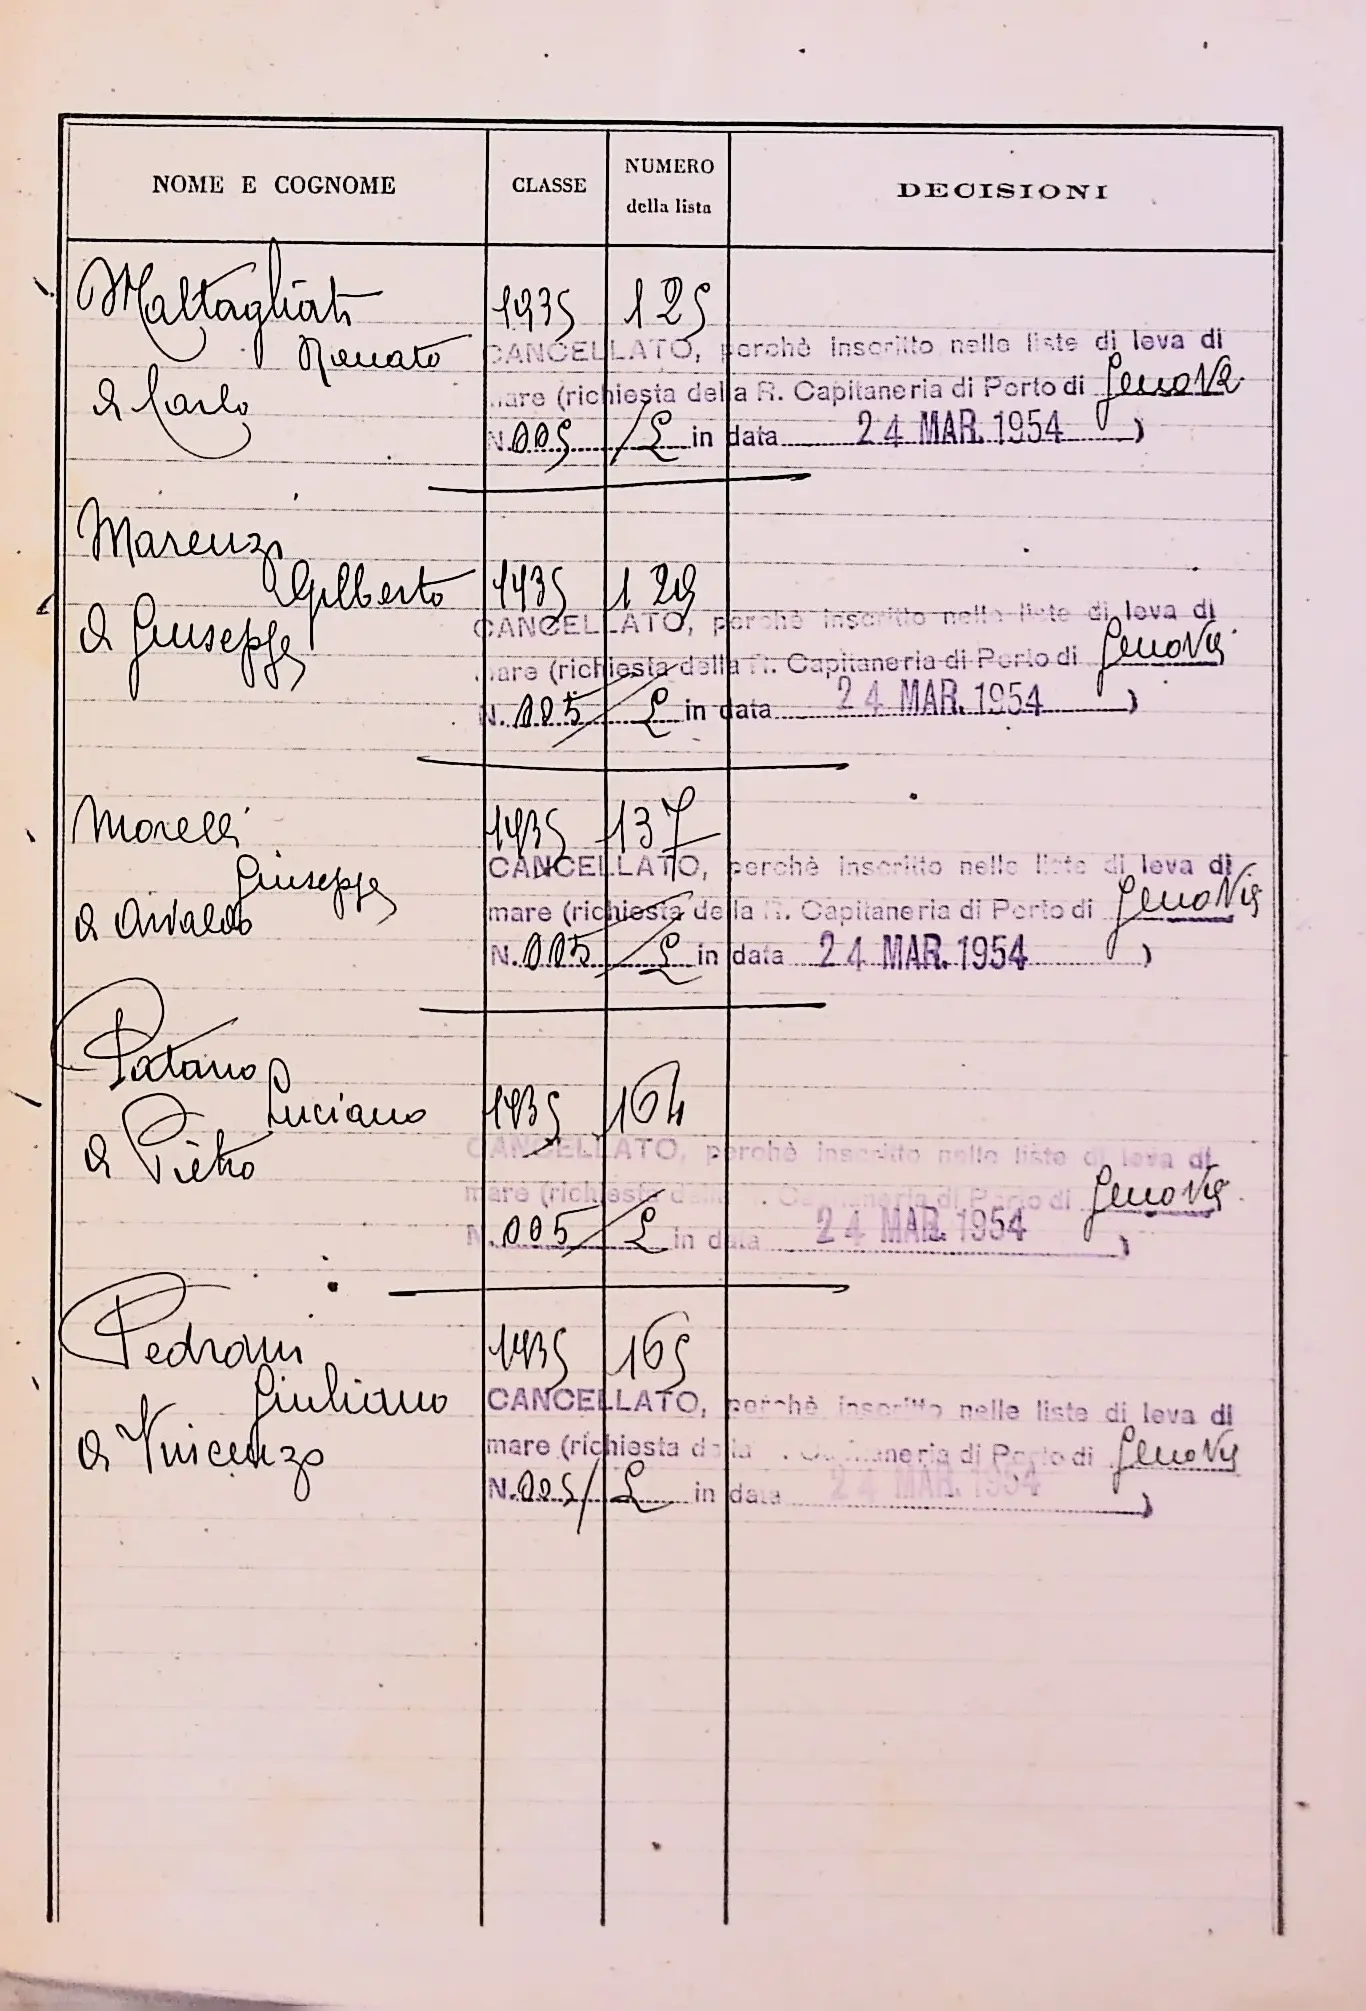 NOME E COGNOME CLASSE NUMERO della lista DECISIONI
Maltagliati 1935 125
Renato
di Carlo
CANCELLATO, perchè inscritto nelle liste di leva di
mare (richiesta della R. Capitaneria di Porto di Genova
N. 005/L in data 24 MAR. 1954 )
Marenzi
Gilberto 1935 129
di Giuseppe
CANCELLATO, perchè inscritto nelle liste di leva di
mare (richiesta della R. Capitaneria di Porto di Genova
N. 005/L in data 24 MAR. 1954 )
Morelli 1935 137
Giuseppe
di Arnaldo
CANCELLATO, perchè inscritto nelle liste di leva di
mare (richiesta della R. Capitaneria di Porto di Genova
N. 005/L in data 24 MAR. 1954 )
Patano
Luciano 1935 164
di Pietro
CANCELLATO, perchè inscritto nelle liste di leva di
mare (richiesta della R. Capitaneria di Porto di Genova
N. 005/L in data 24 MAR. 1954 )
Pedroni 1935 165
Giuliano
di Vincenzo
CANCELLATO, perchè inscritto nelle liste di leva di
mare (richiesta della R. Capitaneria di Porto di Genova
N. 005/L in data 24 MAR. 1954 )